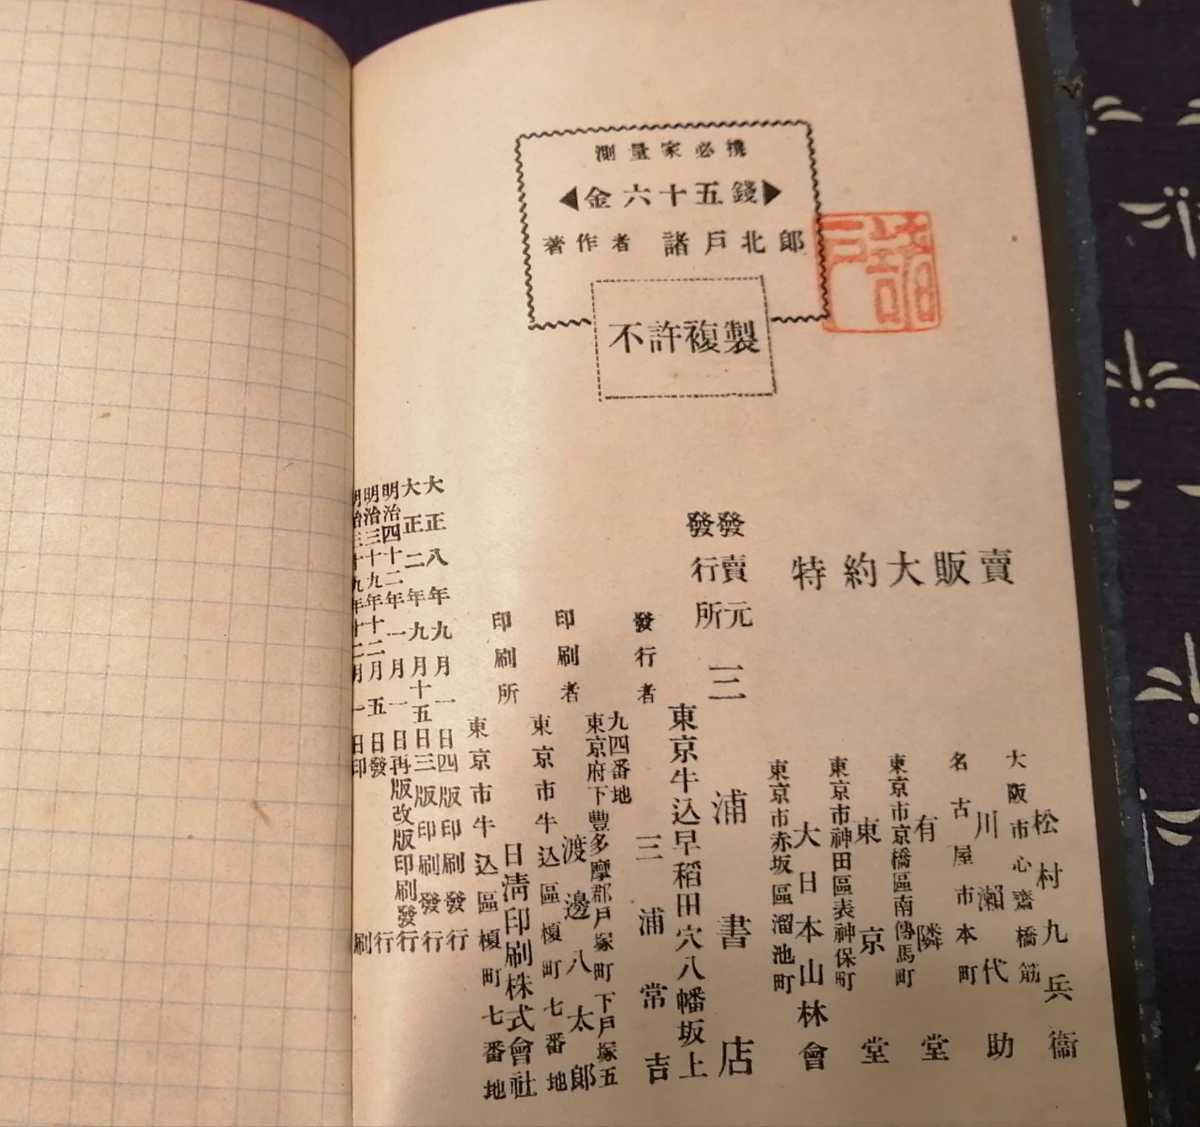 測量家必携
金六十五錢
著作者 諸戸北郎
不許複製
諸戸
明治三十九年十二月一日印刷
明治三十九年十二月五日發行
明治四十二年一月一日再版改版印刷發行
大正二年九月十五日三版印刷發行
大正八年九月一日四版印刷發行
印刷所
東京市牛込區榎町七番地
日淸印刷株式會社
印刷者
東京市牛込區榎町七番地
渡邊八太郎
發行者
東京府下豐多摩郡戸塚町下戸塚五
九四番地
三浦常吉
發行所
發賣元
東京牛込早稻田穴八幡坂上
三浦書店
特約大販賣
東京市赤坂區溜池町
大日本山林會
東京市神田區表神保町
東京堂
東京市京橋區南傳馬町
有隣堂
名古屋市本町
川瀨代助
大阪市心齋橋筋
松村九兵衞